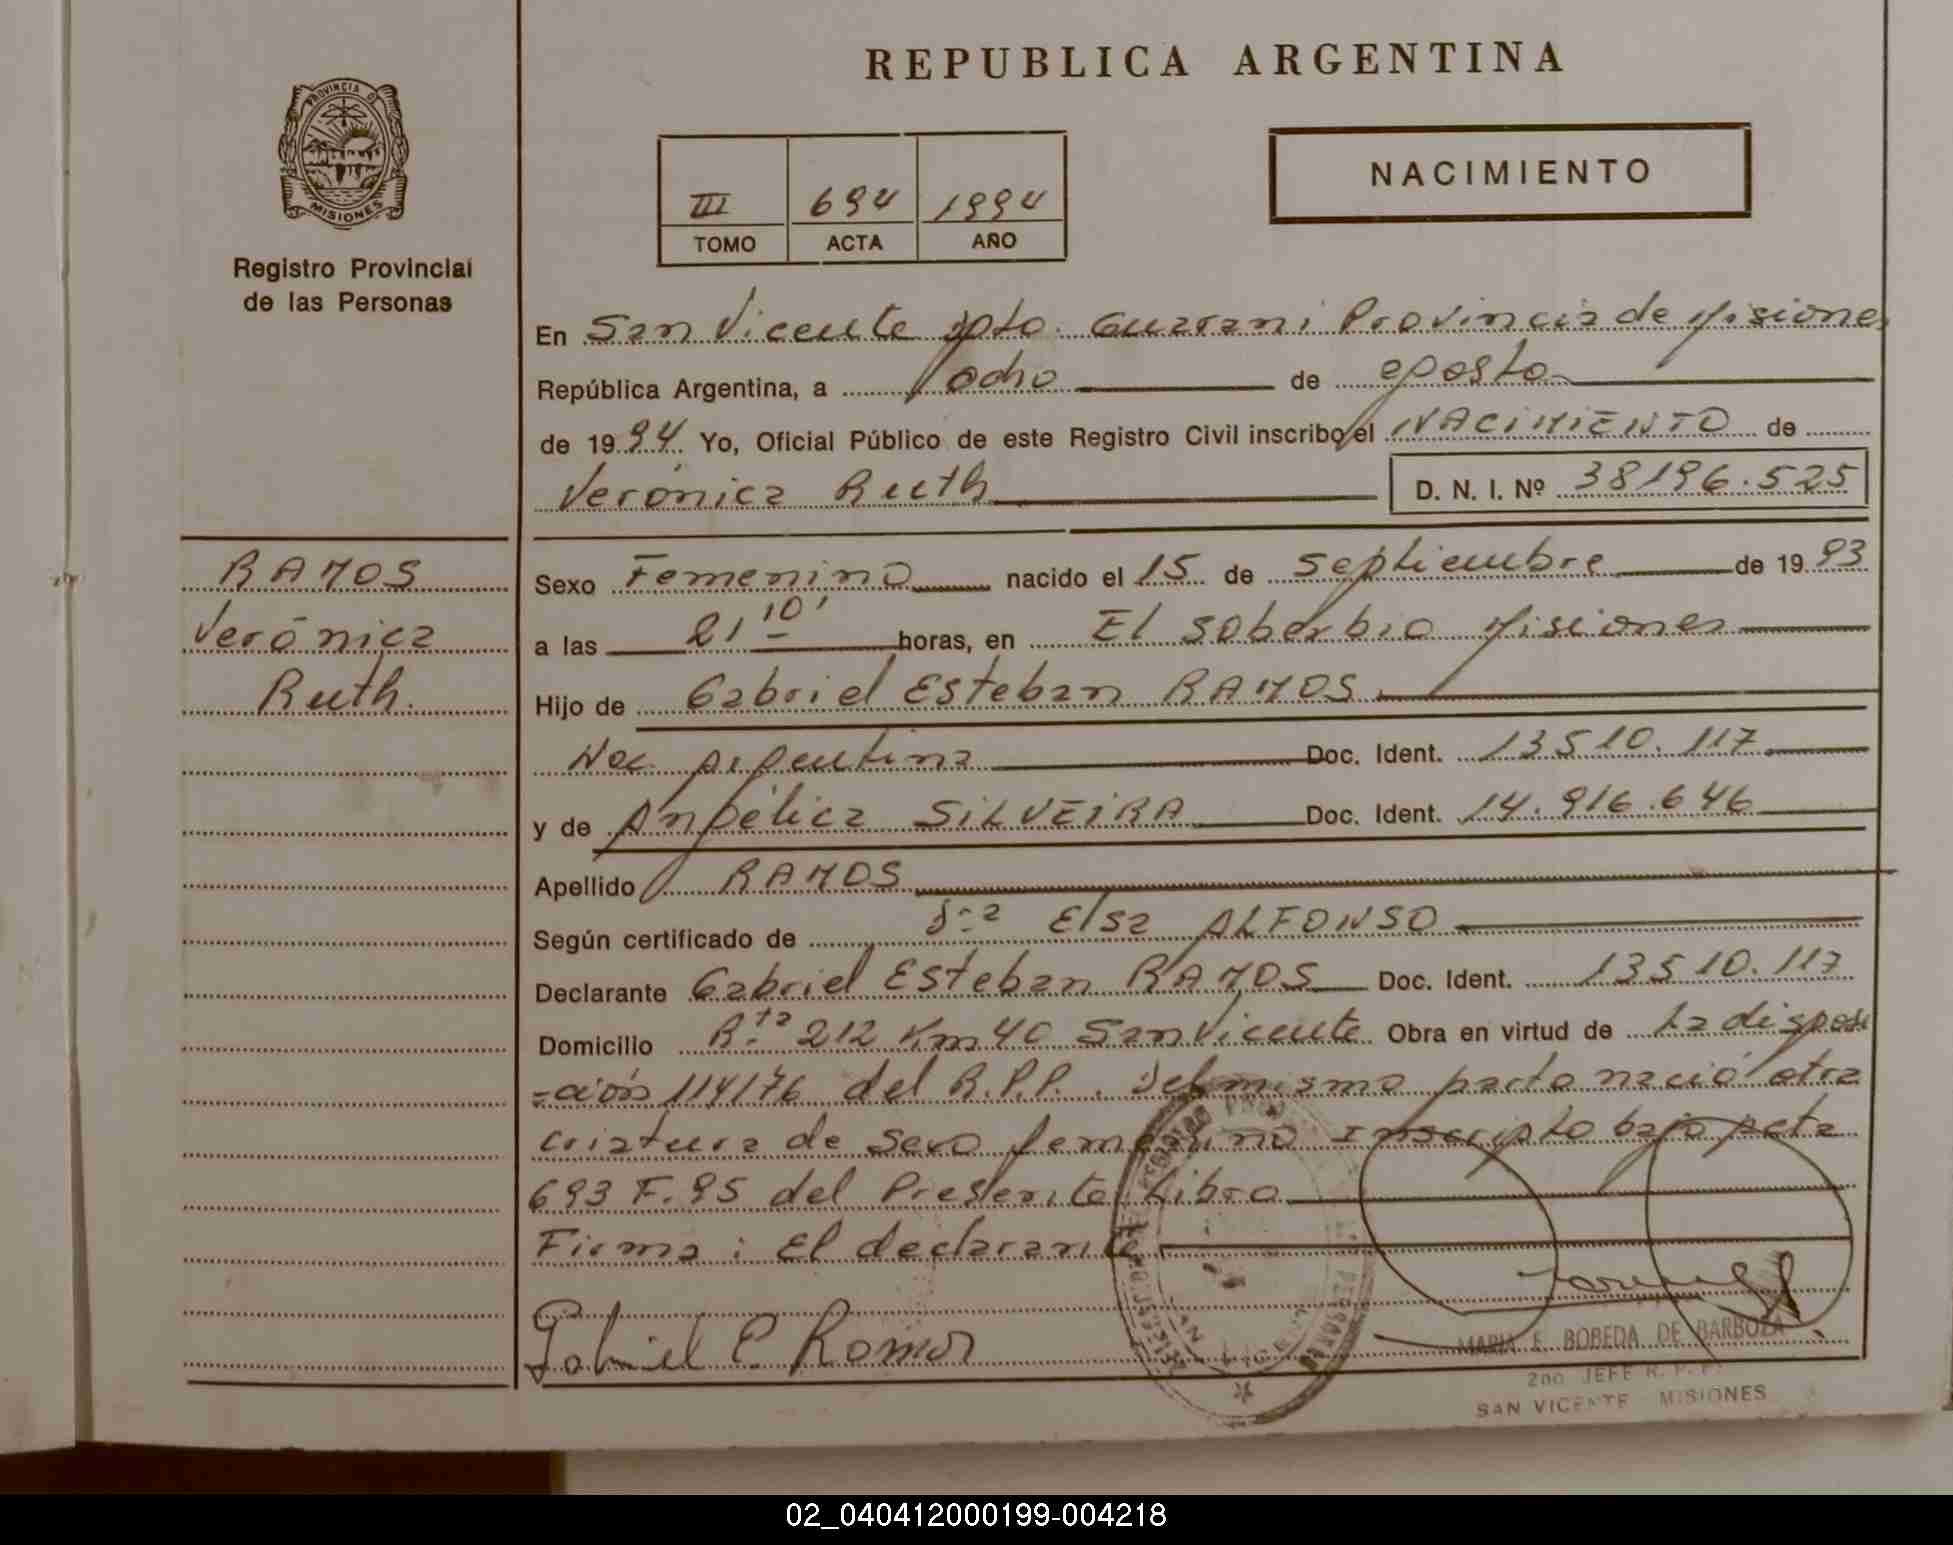 REPUBLICA ARGENTINA
PROVINCIA DE
MISIONES
Registro Provincial
de las Personas
III 694 1994
TOMO ACTA AÑO
NACIMIENTO
En San Vicente Dpto. Guarani Provincia de Misiones
República Argentina, a ocho de agosto
de 1994. Yo, Oficial Público de este Registro Civil inscribo el NACIMIENTO de
Verónica Ruth D. N. I. Nº 38196.525
RAMOS
Verónica
Ruth.
Sexo Femenino nacido el 15 de Septiembre de 1993
a las 21 10' horas, en El Soberbio Misiones
Hijo de Gabriel Esteban RAMOS
Nac. Argentina Doc. Ident. 13510.117
y de Angélica SILVEIRA Doc. Ident. 14.916.646
Apellido RAMOS
Según certificado de Sra Elsa ALFONSO
Declarante Gabriel Esteban RAMOS Doc. Ident. 13510.117
Domicilio R.ta 212 Km 40 San Vicente Obra en virtud de La disposi
=ción 114/76 del R.P.P. Del mismo parto nació otra
criatura de sexo femenino Inscripto bajo Acta
693 F.95 del Presente Libro
Firma: El declarante
Gabriel E. Ramos
MARIA E. BOBEDA DE BARBOZA
2do JEFE R. P. P.
SAN VICENTE MISIONES
02_040412000199-004218